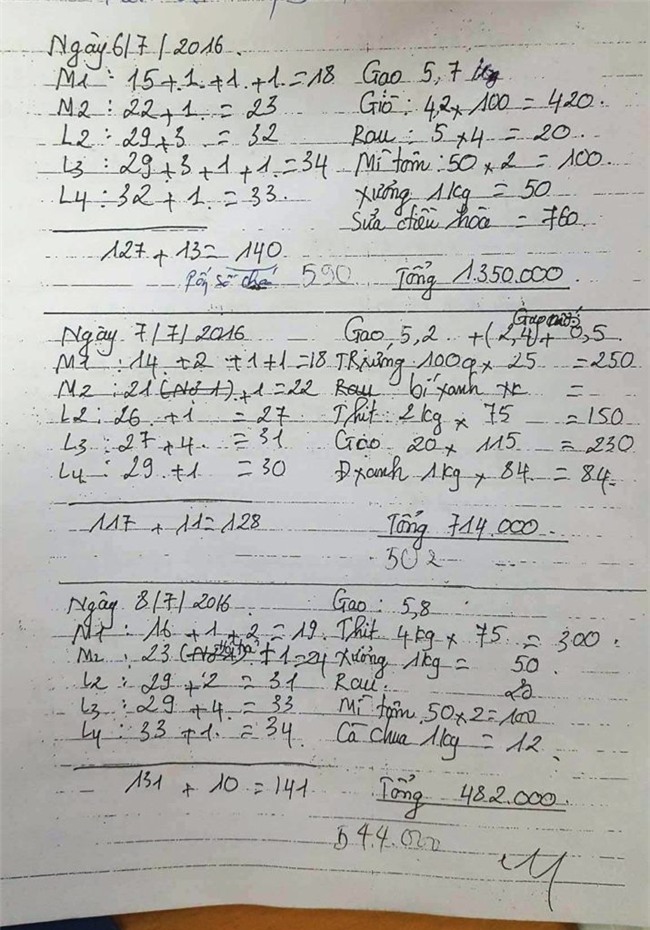 Ngày 6/7/2016.
M1 : 15 + 1 + 1 + 1 = 18 Gao 5,7 kg
M2 : 22 + 1 = 23 Giò : 4,2 x 100 = 420.
L2 : 29 + 3 = 32 Rau : 5 x 4 = 20.
L3 : 29 + 3 + 1 + 1 = 34 Mì tôm : 50 x 2 = 100.
L4 : 32 + 1 = 33. Xương 1kg = 50
Sữa chiều hoà = 760
127 + 13 = 140
590 Tổng 1.350.000
Ngày 7/7/2016 Gao 5,2 + (2,4) + 0,5
M1 : 14 + 2 + 1 + 1 = 18 TRứng 100q x 25 = 250
M2 : 21 + 1 = 22 Rau bí xanh =
L2 : 26 + 1 = 27 Thit : 2kg x 75 = 150
L3 : 27 + 4 = 31 Gào 20 x 115 = 230
L4 : 29 + 1 = 30 Đxanh 1kg x 84 = 84
117 + 11 = 128 Tổng 714.000
502
Ngày 8/7/2016. Gao : 5,8
M1 : 16 + 1 + 2 = 19. Thit 4kg x 75 = 300.
M2 : 23 + 1 = 24 Xương 1kg = 50
L2 : 29 + 2 = 31 Rau 20
L3 : 29 + 4 = 33 Mì tôm 50 x 2 = 100
L4 : 33 + 1 = 34 Cà chua 1kg = 12
131 + 10 = 141 Tổng 482.000